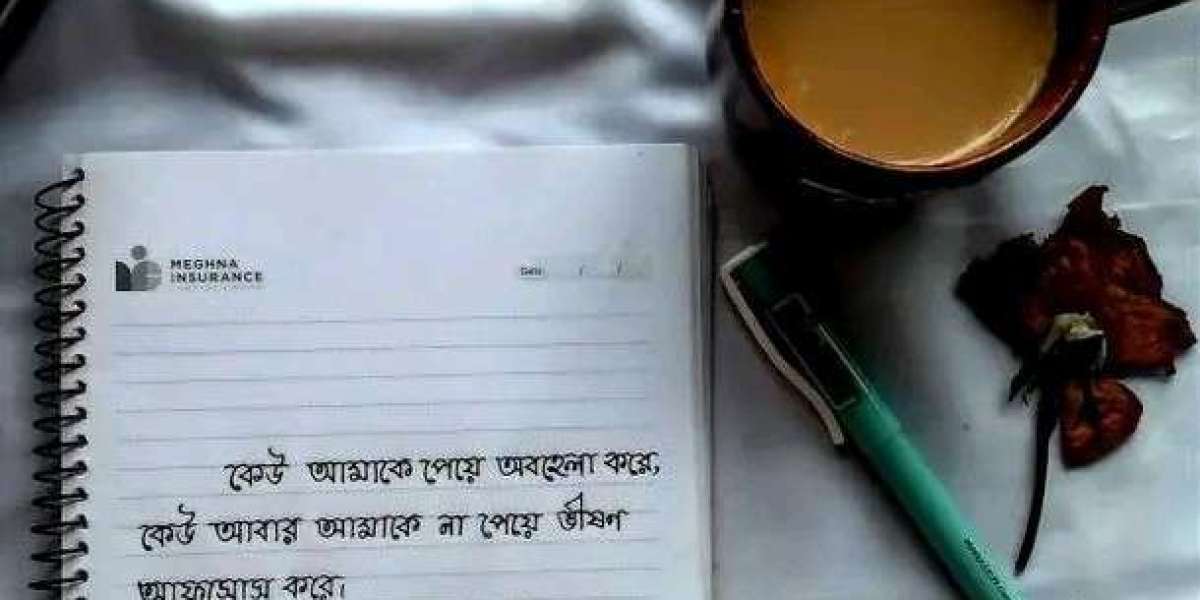 MEGHNA
INSURANCE
Date: / /
কেউ আমাকে পেয়ে অবহেলা করে,
কেউ আবার আমাকে না পেয়ে ভীষণ
আফসোস করে।